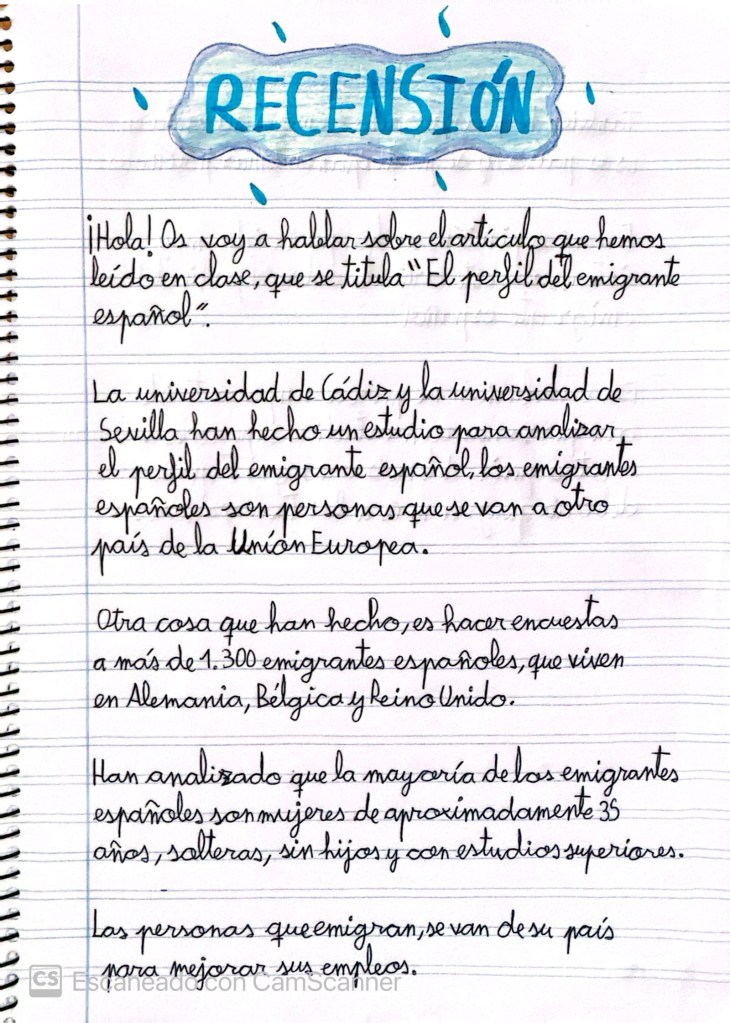 RECENSIÓN
¡Hola! Os voy a hablar sobre el artículo que hemos
leído en clase, que se titula "El perfil del emigrante
español".
La universidad de Cádiz y la universidad de
Sevilla han hecho un estudio para analizar
el perfil del emigrante español, los emigrantes
españoles son personas que se van a otro
país de la Unión Europea.
Otra cosa que han hecho, es hacer encuestas
a más de 1.300 emigrantes españoles, que viven
en Alemania, Bélgica y Reino Unido.
Han analizado que la mayoría de los emigrantes
españoles son mujeres de aproximadamente 35
años, solteras, sin hijos y con estudios superiores.
Las personas que emigran, se van de su país
para mejorar sus empleos.
CS Escaneado con CamScanner